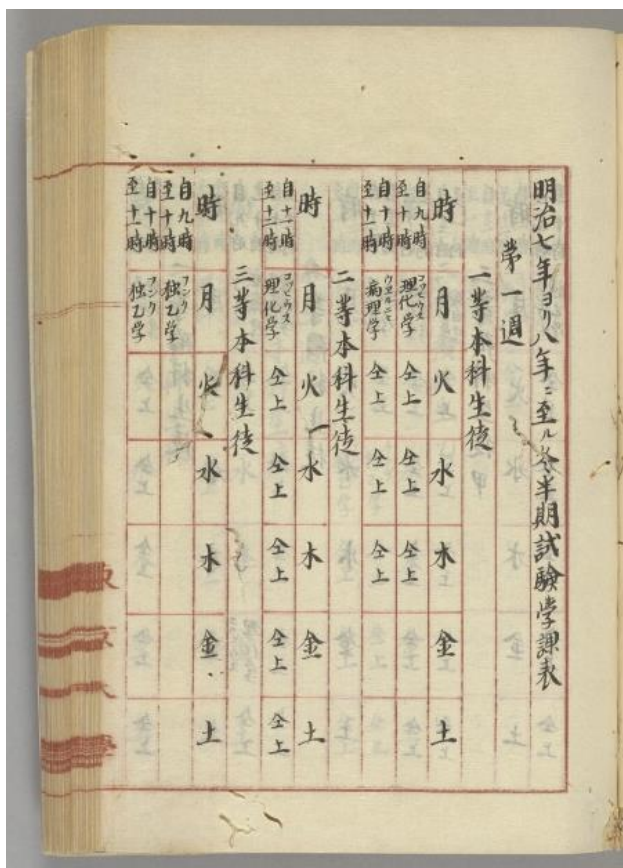 明治七年ヨリ八年ニ至ル冬半期試験学課表
第一週
一等本科生徒
時 月 火 水 木 金 土
自九時 至十時 コッヒウス 理化学 仝上 仝上 仝上
自十時 至十一時 病理学 仝上 仝上 仝上
二等本科生徒
時 月 火 水 木 金 土
自十一時 至十二時 コッヒウス 理化学 仝上 仝上 仝上 仝上 仝上
三等本科生徒
時 月 火 水 木 金 土
自九時 至十時 フンク 独乙学
自十時 至十一時 フンク 独乙学